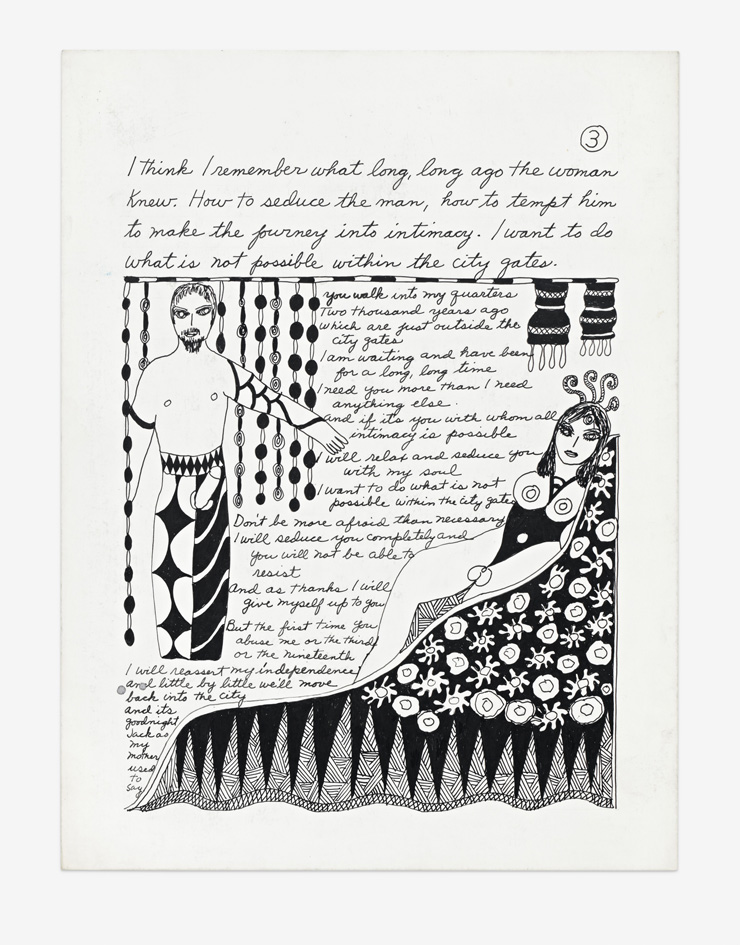 3
I think I remember what long, long ago the woman
Knew. How to seduce the man, how to tempt him
to make the journey into intimacy. I want to do
what is not possible within the city gates.
you walk into my quarters
Two thousand years ago
which are just outside the
city gates
I am waiting and have been
for a long, long time
I need you more than I need
anything else.
and if it's you with whom all
intimacy is possible
I will relax and seduce you
with my soul
I want to do what is not
possible within the city gates
Don't be more afraid than necessary
I will seduce you completely and
you will not be able to
resist
And as thanks I will
give myself up to you
But the first time you
abuse me or the third
or the nineteenth
I will reassert my independence
and little by little we'll move
back into the city
and its
goodnight
Jack as
my
mother
used
to
say